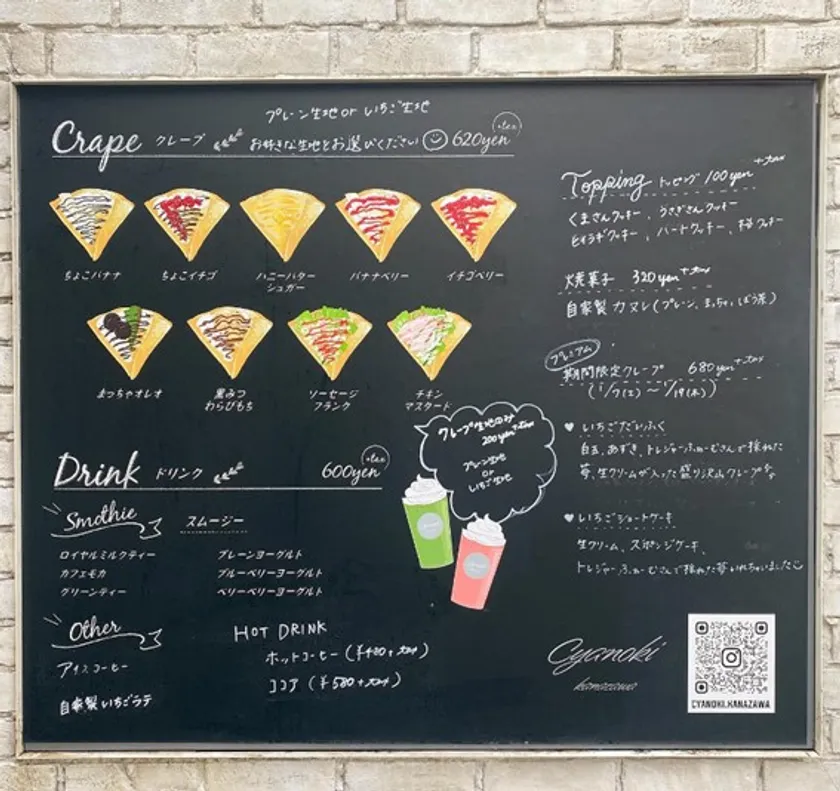 プレーン生地 or いちご生地
Crape クレープ お好きな生地をお選びください 620yen +tax
ちょこバナナ
ちょこイチゴ
ハニーバター
シュガー
バナナベリー
イチゴベリー
まっちゃオレオ
黒みつ
わらびもち
ソーセージ
フランク
チキン
マスタード
クレープ生地のみ
200yen+tax
プレーン生地
or
いちご生地
Drink ドリンク 600yen +tax
Smothie スムージー
ロイヤルミルクティー
カフェモカ
グリーンティー
プレーンヨーグルト
ブルーベリーヨーグルト
ベリーベリーヨーグルト
Other
アイスコーヒー
自家製いちごラテ
HOT DRINK
ホットコーヒー (¥480+tax)
ココア (¥580+tax)
Topping トッピング 100yen +tax
くまさんクッキー、うさぎさんクッキー
ヒイラギクッキー、ハートクッキー、桜クッキー
焼菓子 320yen+tax
自家製カヌレ(プレーン、まっちゃ、ほうじ茶)
プレミアム
期間限定クレープ 680yen+tax
♥ いちごだいふく
白玉、あずき、トレジャーふぁーむさんで採れた
苺、生クリームが入った盛り沢山クレープ
♥ いちごショートケーキ
生クリーム、スポンジケーキ、
トレジャーふぁーむさんで採れた苺いれちゃいました
Cyanoki
kanazawa
CYANOKI.KANAZAWA